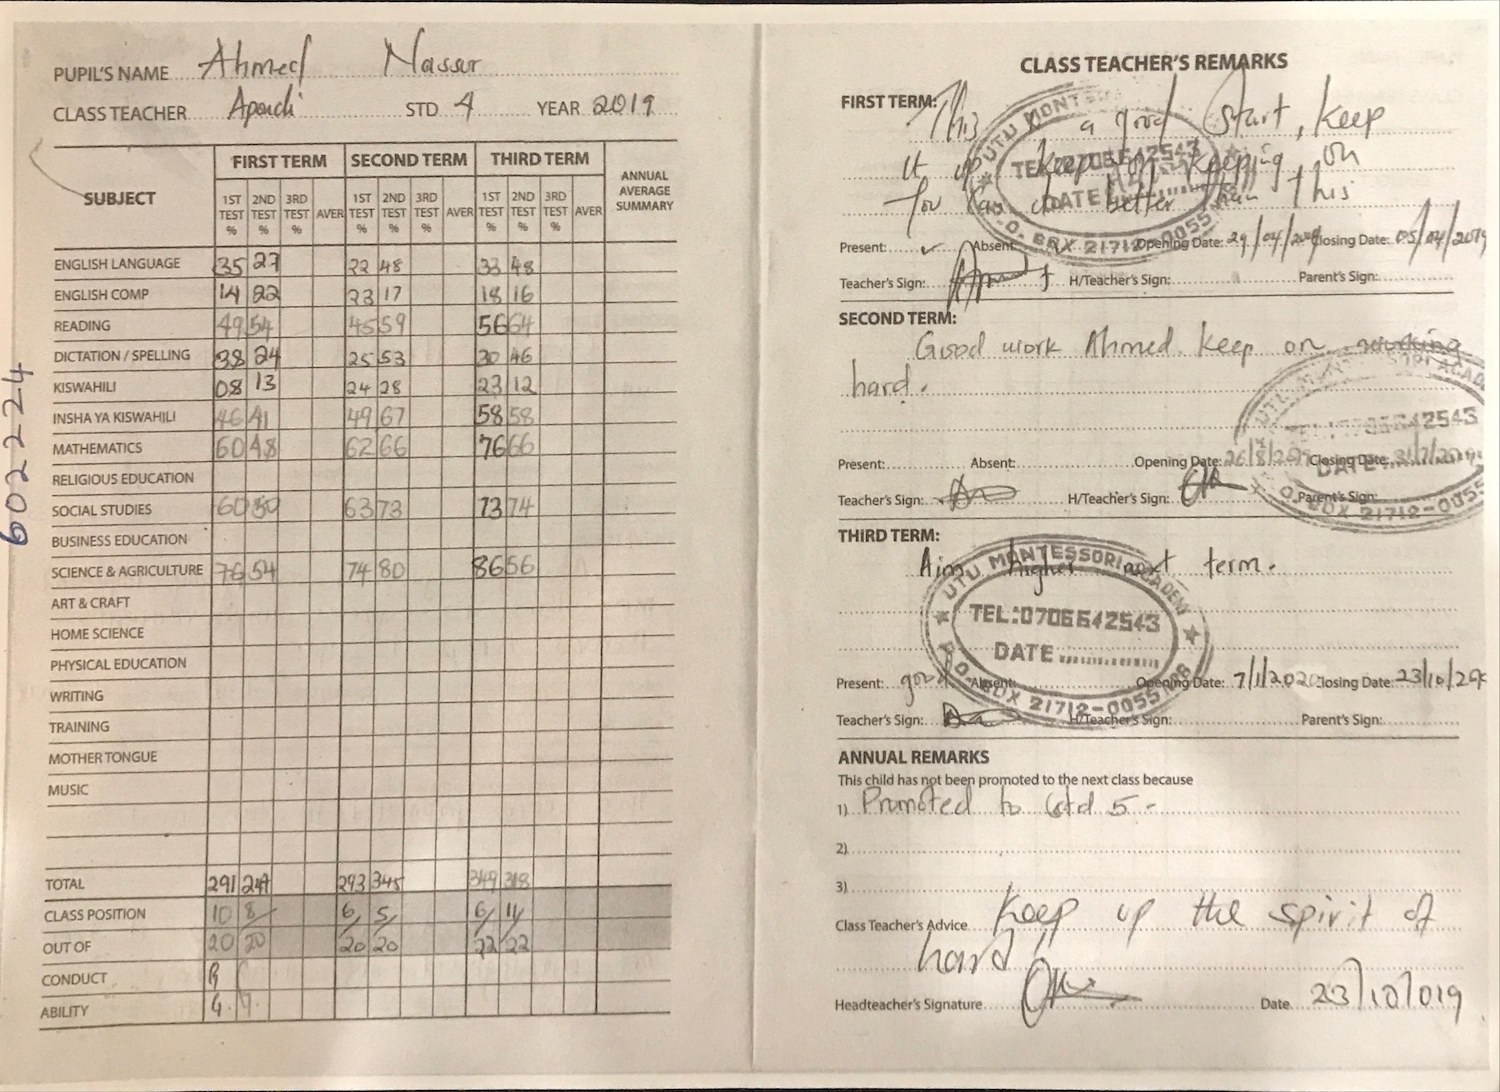 PUPIL'S NAME Ahmed Nassur
CLASS TEACHER Apondi STD 4 YEAR 2019
SUBJECT FIRST TERM SECOND TERM THIRD TERM ANNUAL AVERAGE SUMMARY
1ST TEST % 2ND TEST % 3RD TEST % AVER 1ST TEST % 2ND TEST % 3RD TEST % AVER 1ST TEST % 2ND TEST % 3RD TEST % AVER
ENGLISH LANGUAGE 35 27 22 48 33 48
ENGLISH COMP 14 22 23 17 18 16
READING 49 54 45 59 56 64
DICTATION / SPELLING 38 24 25 53 30 46
KISWAHILI 08 13 24 28 23 12
INSHA YA KISWAHILI 46 41 49 67 58 58
MATHEMATICS 60 48 62 66 76 66
RELIGIOUS EDUCATION
SOCIAL STUDIES 60 50 63 73 73 74
BUSINESS EDUCATION
SCIENCE & AGRICULTURE 76 54 74 80 86 56
ART & CRAFT
HOME SCIENCE
PHYSICAL EDUCATION
WRITING
TRAINING
MOTHER TONGUE
MUSIC
TOTAL 291 293 345 349 318
CLASS POSITION 10 8 6 5 6 11
OUT OF 20 20 20 20 22 22
CONDUCT B
ABILITY
602224
CLASS TEACHER'S REMARKS
FIRST TERM: This a good start, keep
it up keep on keeping on
You can do better than this
Present: Absent: Opening Date: 29/04/2019 Closing Date: 05/04/2019
Teacher's Sign: H/Teacher's Sign: Parent's Sign:
UTU MONTESSORI
TEL:0706642543
DATE
P.O. BOX 21712-0055
SECOND TERM:
Good work Ahmed keep on working
hard.
Present: Absent: Opening Date: 26/8/2019 Closing Date:
Teacher's Sign: H/Teacher's Sign: Parent's Sign:
UTU MONTESSORI ACAD
TEL:0706642543
DATE
P.O. BOX 21712-0055
THIRD TERM:
Aim higher next term.
Present: good Absent: Opening Date: 7/1/2020 Closing Date: 23/10/20
Teacher's Sign: H/Teacher's Sign: Parent's Sign:
UTU MONTESSORI ACADEMY
TEL:0706642543
DATE
P.O. BOX 21712-0055
ANNUAL REMARKS
This child has not been promoted to the next class because
1) Promoted to Std 5.
2)
3)
Class Teacher's Advice Keep up the spirit of
hard!!
Headteacher's Signature Date 23/10/019